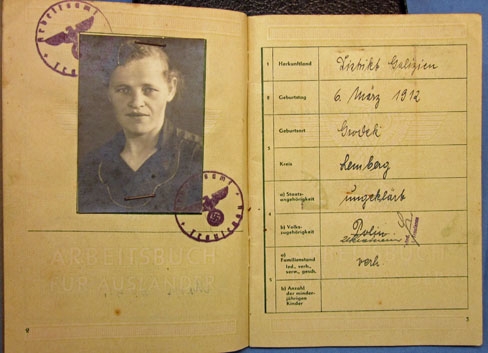 Arbeitsamt
ARBEITSBUCH
FÜR AUSLÄNDER
2
1 Herkunftland Distrikt Galizien
2 Geburtstag 6. März 1912
Geburtsort Grodek
3
Kreis Lemberg
a) Staats-
angehörigkeit ungeklärt
4
b) Volks-
zugehörigkeit Polin
a)
Familienstand
led., verh.,
verw., gesch. verh.
5
b) Anzahl
der minder-
jährigen
Kinder
3